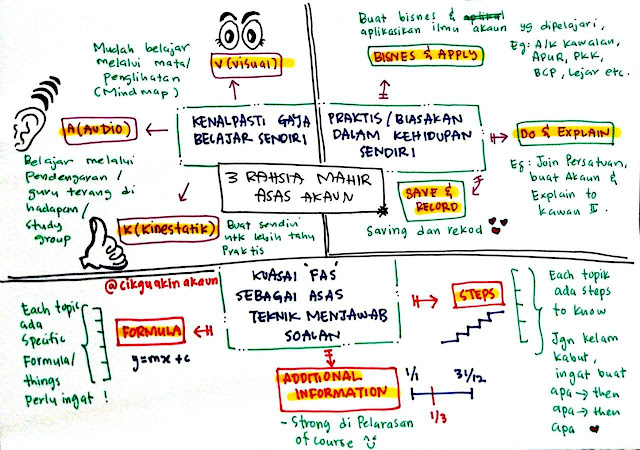 3 RAHSIA MAHIR
ASAS AKAUN
KENALPASTI GAYA
BELAJAR SENDIRI
V (VISUAL)
Mudah belajar
melalui mata/
Penglihatan
(Mindmap)
A (AUDIO)
Belajar melalui
Pendengaran /
guru terang di
hadapan/
Study
group
K (Kinestatik)
Buat sendiri
utk lebih tahu
Praktis
PRAKTIS / BIASAKAN
DALAM KEHIDUPAN
SENDIRI
BISNES & APPLY
Buat bisnes &
aplikasikan ilmu akaun yg dipelajari,
Eg: A/K Kawalan,
APUR, PKK,
BCP, Lejar etc.
DO & EXPLAIN
Eg: Join Persatuan,
buat Akaun &
Explain to
kawan
SAVE &
RECORD
Saving dan rekod
KUASAI "FAS"
SEBAGAI ASAS
TEKNIK MENJAWAB
SOALAN
@cikguakinakaun
FORMULA
y=mx+c
Each topic
ada
specific
Formula/
things
perlu ingat !
ADDITIONAL
INFORMATION
- Strong di Pelarasan
of course
1/1
31/12
1/3
STEPS
Each topik
ada steps
to know
Jgn kelam
kabut,
ingat buat
apa → then
apa → then
apa